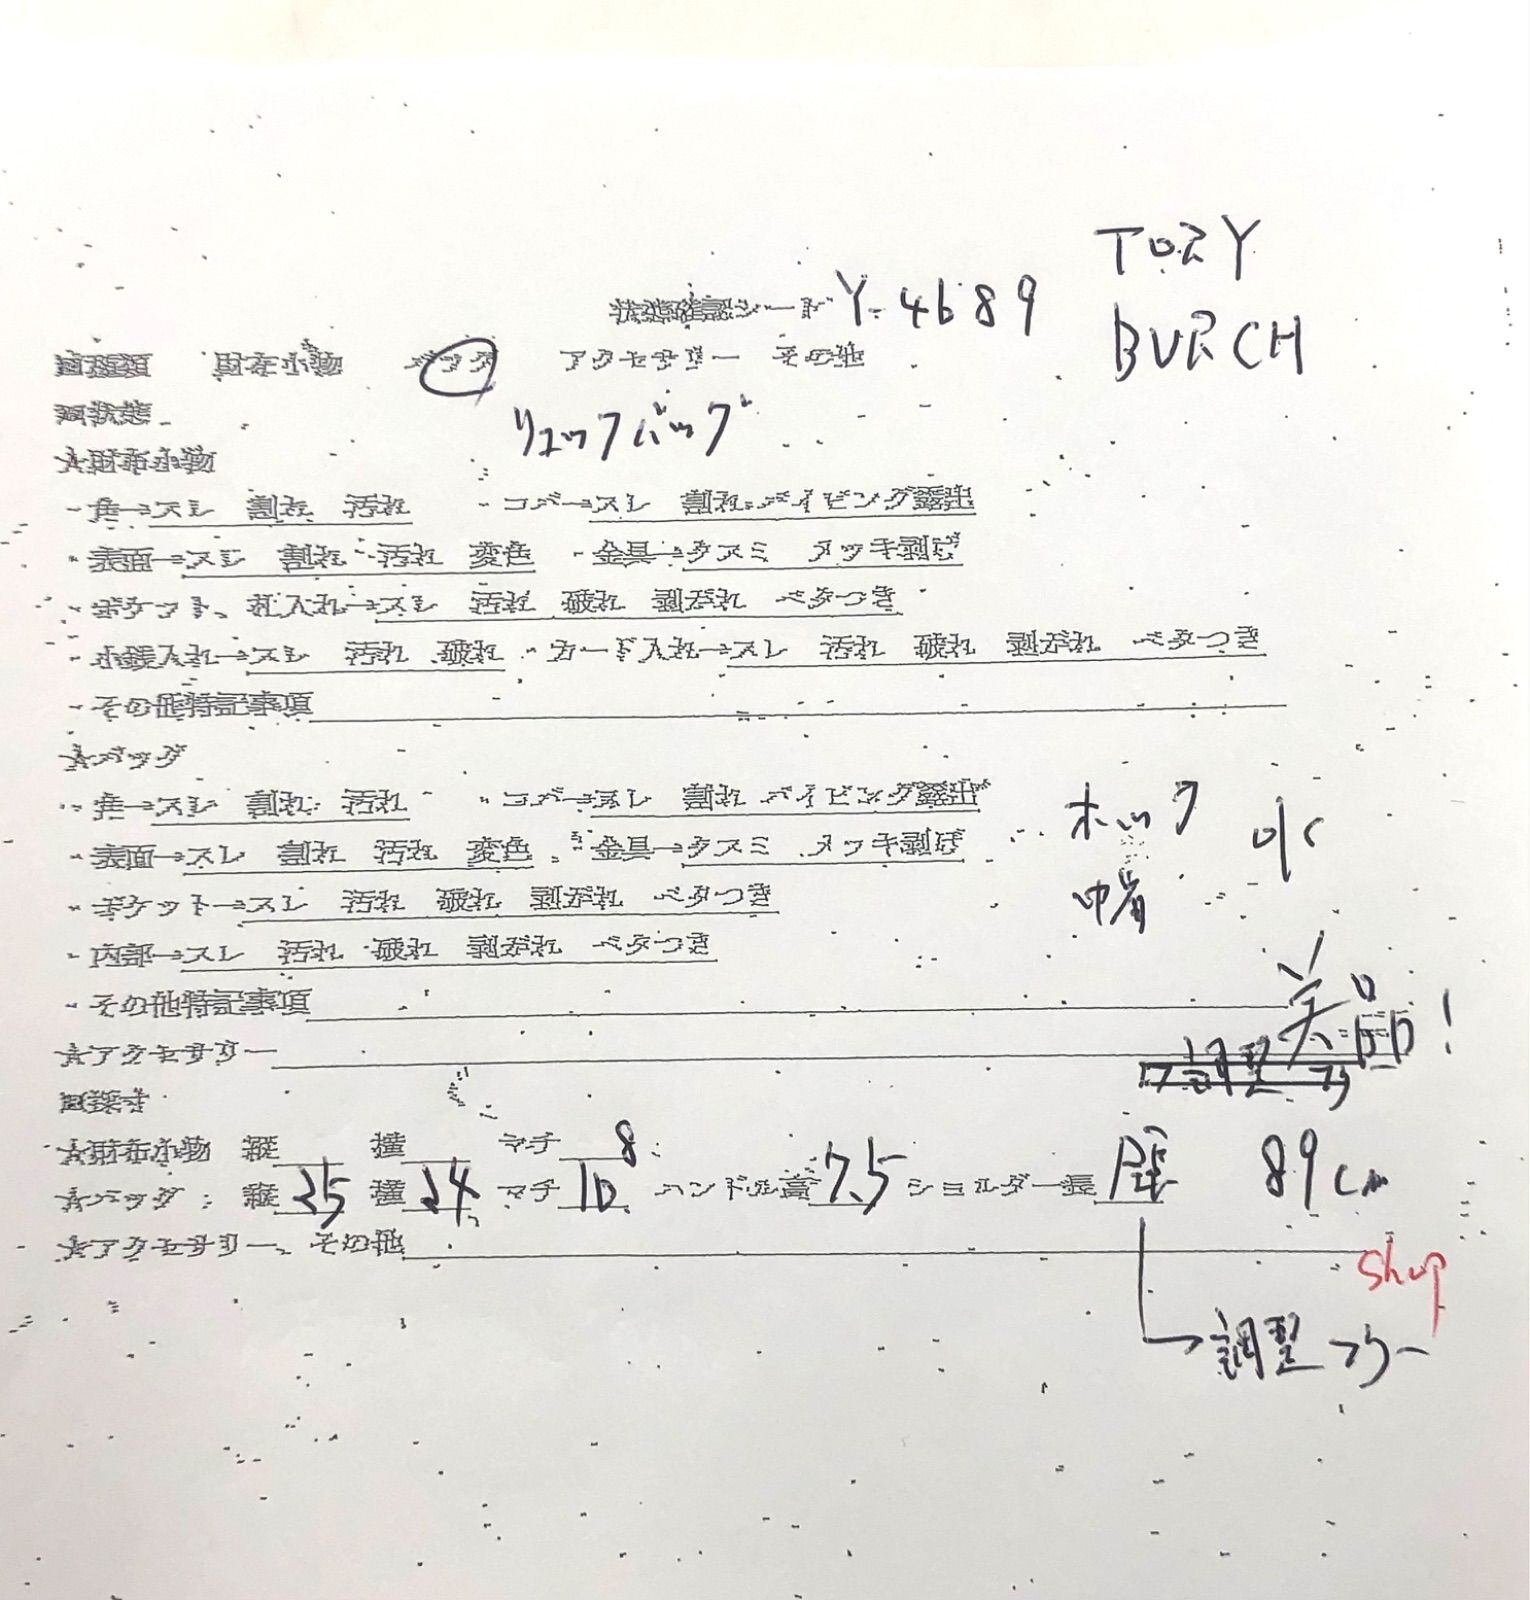 TORY
BURCH
状態確認シート Y-4689
財布小物 バッグ アクセサリー その他
回状態
リュックバッグ
☆財布小物
・角→スレ 割れ 汚れ ・コバ→スレ 割れ パイピング露出
・表面→スレ 割れ 汚れ 変色 ・金具→クスミ メッキ剥げ
・ポケット、札入れ→スレ 汚れ 破れ 剥がれ ベタつき
・小銭入れ→スレ 汚れ 破れ ・カード入れ→スレ 汚れ 破れ 剥がれ ベタつき
・その他特記事項
☆バッグ
・角→スレ 割れ 汚れ ・コバ→スレ 割れ パイピング露出
・表面→スレ 割れ 汚れ 変色 ・金具→クスミ メッキ剥げ
ホック
・ポケット→スレ 汚れ 破れ 剥がれ ベタつき
・内部→スレ 汚れ 破れ 剥がれ ベタつき
・その他特記事項
美品!
☆アクセサリー
回採寸
☆財布小物 縦 横 マチ 8
☆バッグ:縦 25 横 24 マチ 10 ハンドル高 7.5 ショルダー長 89cm
☆アクセサリー、その他
shop
調整